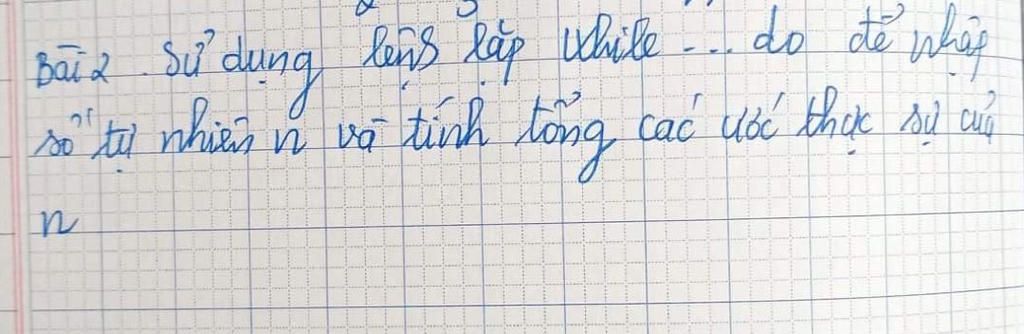 Bài 2. Sử dụng lệnh lặp While ... do để nhập
số tự nhiên n và tính tổng các ước thực sự của
n